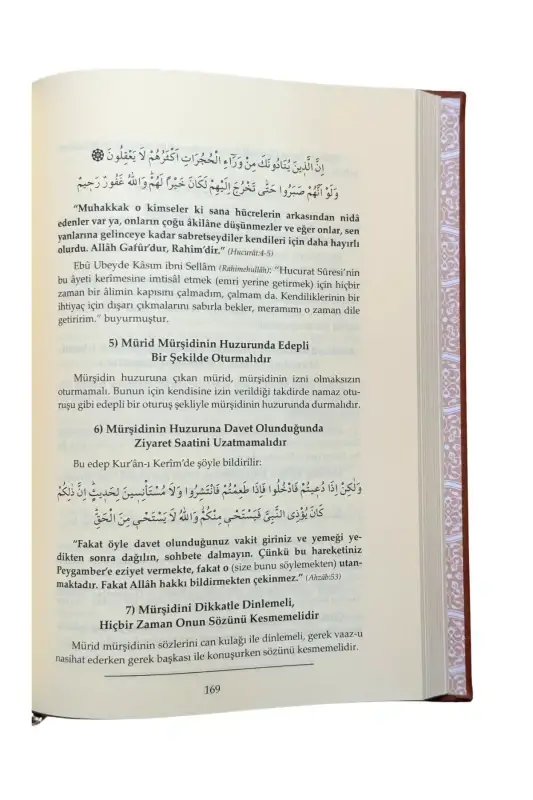 اِنَّ الَّذٖينَ يُنَادُونَكَ مِنْ وَرَٓاءِ الْحُجُرَاتِ اَكْثَرُهُمْ لَا يَعْقِلُونَ ۞
وَلَوْ اَنَّهُمْ صَبَرُوا حَتّٰى تَخْرُجَ اِلَيْهِمْ لَكَانَ خَيْرًا لَهُمْ وَاللّٰهُ غَفُورٌ رَحٖيمٌ
"Muhakkak o kimseler ki sana hücrelerin arkasından nidâ
edenler var ya, onların çoğu âkilâne düşünmezler ve eğer onlar, sen
yanlarına gelinceye kadar sabretseydiler kendileri için daha hayırlı
olurdu. Allâh Gafûr'dur, Rahim'dir." (Hucurât:4-5)
Ebû Ubeyde Kâsım ibni Sellâm (Rahimehullâh): "Hucurat Sûresi'nin
bu âyeti kerîmesine imtisâl etmek (emri yerine getirmek) için hiçbir
zaman bir âlimin kapısını çalmadım, çalmam da. Kendiliklerinin bir
ihtiyaç için dışarı çıkmalarını sabırla bekler, meramımı o zaman dile
getiririm." buyurmuştur.
5) Mürid Mürşidinin Huzurunda Edepli
Bir Şekilde Oturmalıdır
Mürşidin huzuruna çıkan mürid, mürşidinin izni olmaksızın
oturmamalı. Bunun için kendisine izin verildiği takdirde namaz otu-
ruşu gibi edepli bir oturuş şekliyle mürşidinin huzurunda durmalıdır.
6) Mürşidinin Huzuruna Davet Olunduğunda
Ziyaret Saatini Uzatmamalıdır
Bu edep Kur'ân-ı Kerîm'de şöyle bildirilir:
وَلٰكِنْ اِذَا دُعٖيتُمْ فَادْخُلُوا فَاِذَا طَعِمْتُمْ فَانْتَشِرُوا وَلَا مُسْتَأْنِسٖينَ لِحَدٖيثٍ اِنَّ ذٰلِكُمْ
كَانَ يُؤْذِى النَّبِىَّ فَيَسْتَحْيٖ مِنْكُمْ وَاللّٰهُ لَا يَسْتَحْيٖ مِنَ الْحَقِّ
"Fakat öyle davet olunduğunuz vakit giriniz ve yemeği ye-
dikten sonra dağılın, sohbete dalmayın. Çünkü bu hareketiniz
Peygamber'e eziyet vermekte, fakat o (size bunu söylemekten) utan-
maktadır. Fakat Allâh hakkı bildirmekten çekinmez." (Ahzâb:53)
7) Mürşidini Dikkatle Dinlemeli,
Hiçbir Zaman Onun Sözünü Kesmemelidir
Mürid mürşidinin sözlerini can kulağı ile dinlemeli, gerek vaaz-u
nasihat ederken gerek başkası ile konuşurken sözünü kesmemelidir.
169